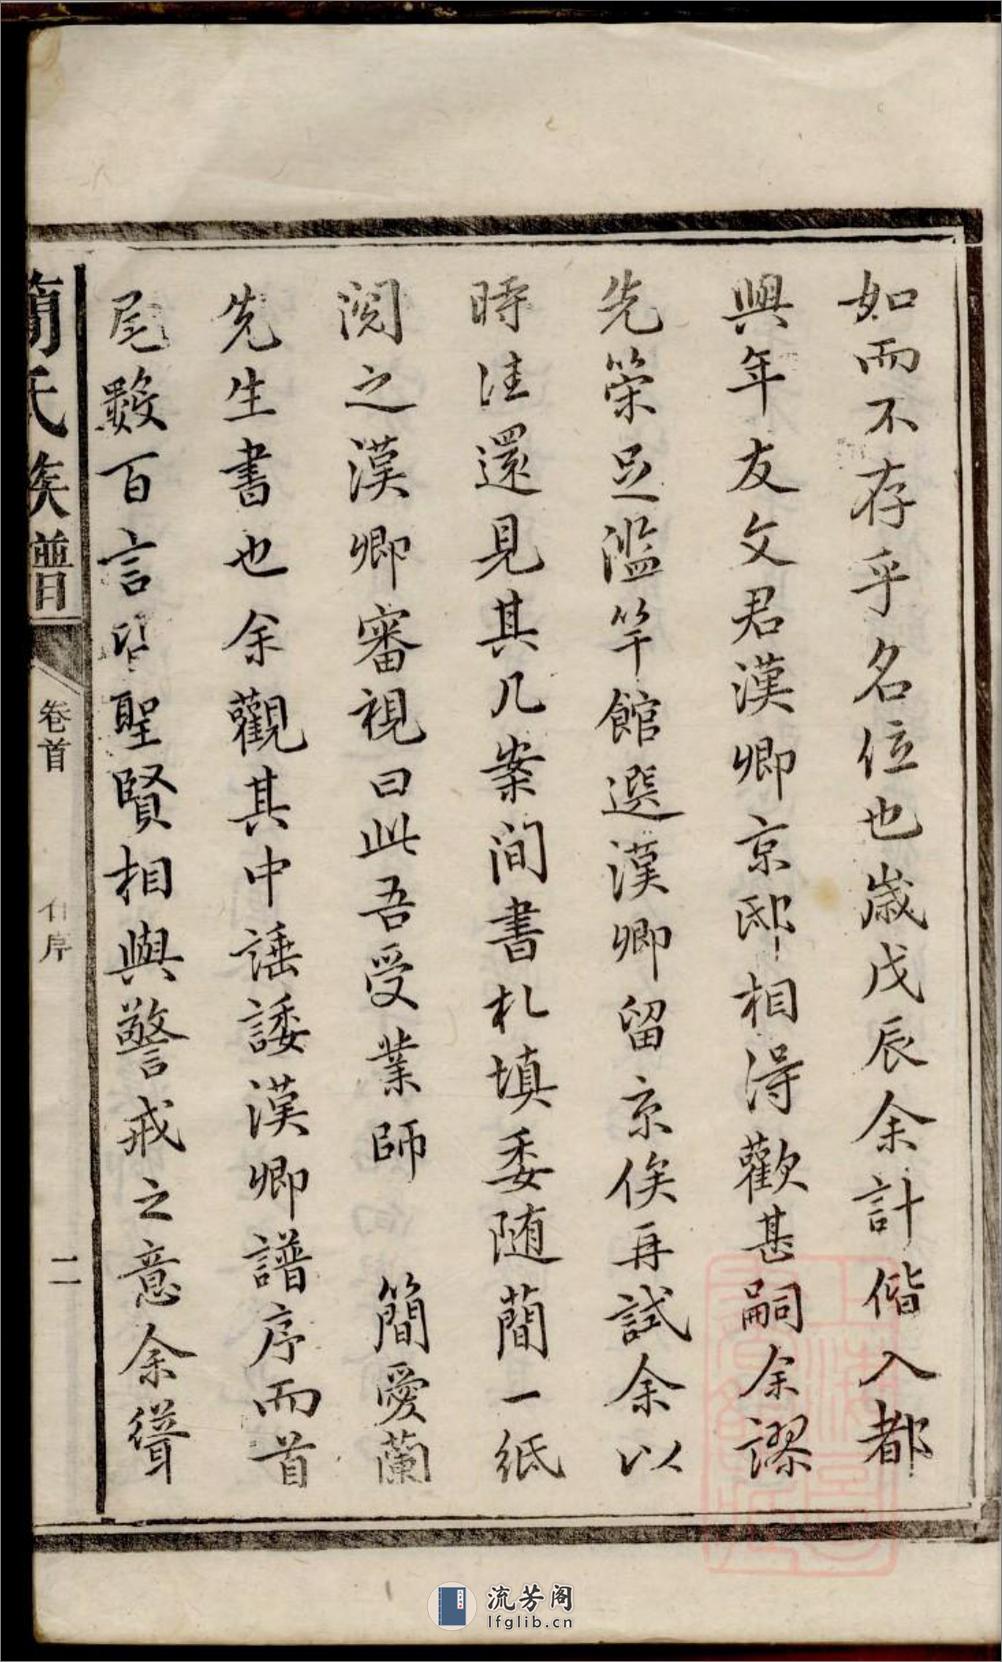 如而不存乎名位也歲戊辰余計偕入都
與年友文君漢卿京邸相得歡甚嗣余謬
先策足濫竽館選漢卿留京俟再試余以
時往還見其几案間書札填委随蕳一紙
閱之漢卿審視曰此吾受業師 簡愛蘭
先生書也余觀其中諈諉漢卿譜序而首
尾數百言皆聖賢相與警戒之意余聳
簡氏族譜 卷首 序 二
流芳阁
lfglib.cn